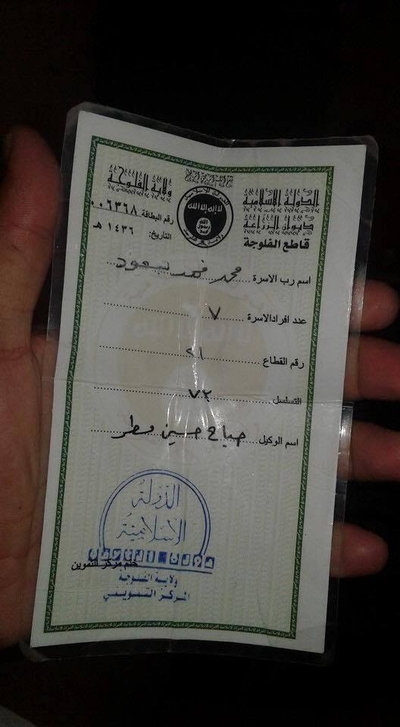 الدولة الاسلامية
ولاية الفلوجة
ديوان الزراعة
قاطع الفلوجة
لا إله إلا الله
رقم البطاقة ٠٠٦٣٦٨
التاريخ: ١٤٣٦ هـ
اسم رب الاسرة: محمد فهد سعود
عدد افراد الاسرة ٧
رقم القطاع ٢١
التسلسل ٧٢
اسم الوكيل: صباح حسين مطر
الدولة
الاسلامية
ختم مركز التموين
ولاية الفلوجة
المركز التمويني